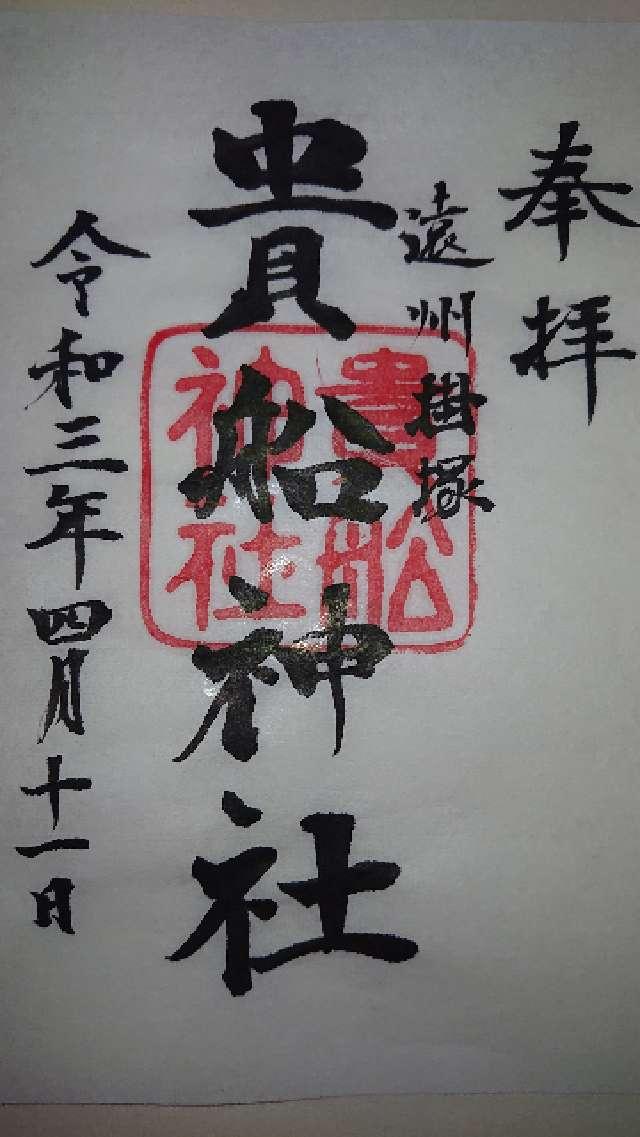 奉拝
遠州掛塚
貴船神社
貴船神社
令和三年四月十一日